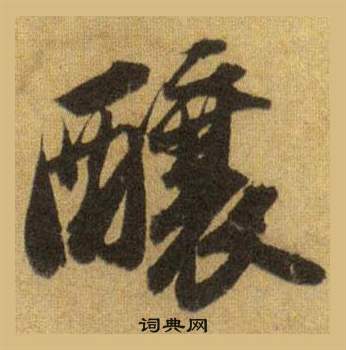 釀
词典网